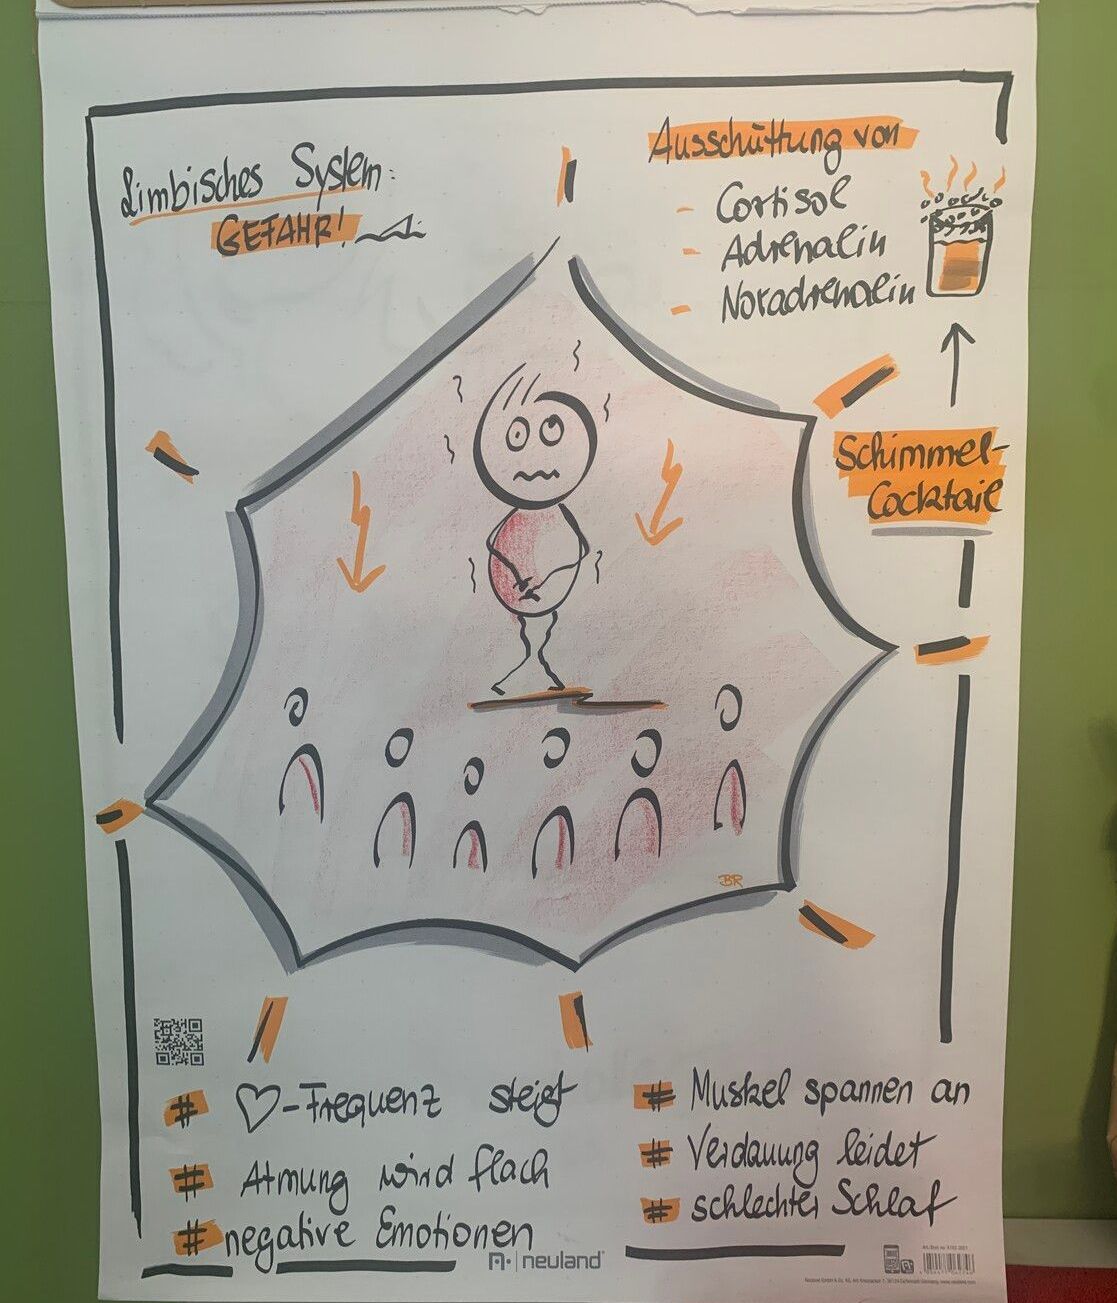 Limbisches System:
GEFAHR!
Ausschüttung von
- Cortisol
- Adrenalin
- Noradrenalin
Schimmel-
Cocktail
BR
# ♡-Frequenz steigt
# Atmung wird flach
# negative Emotionen
# Muskel spannen an
# Verdauung leidet
# schlechter Schlaf
neuland